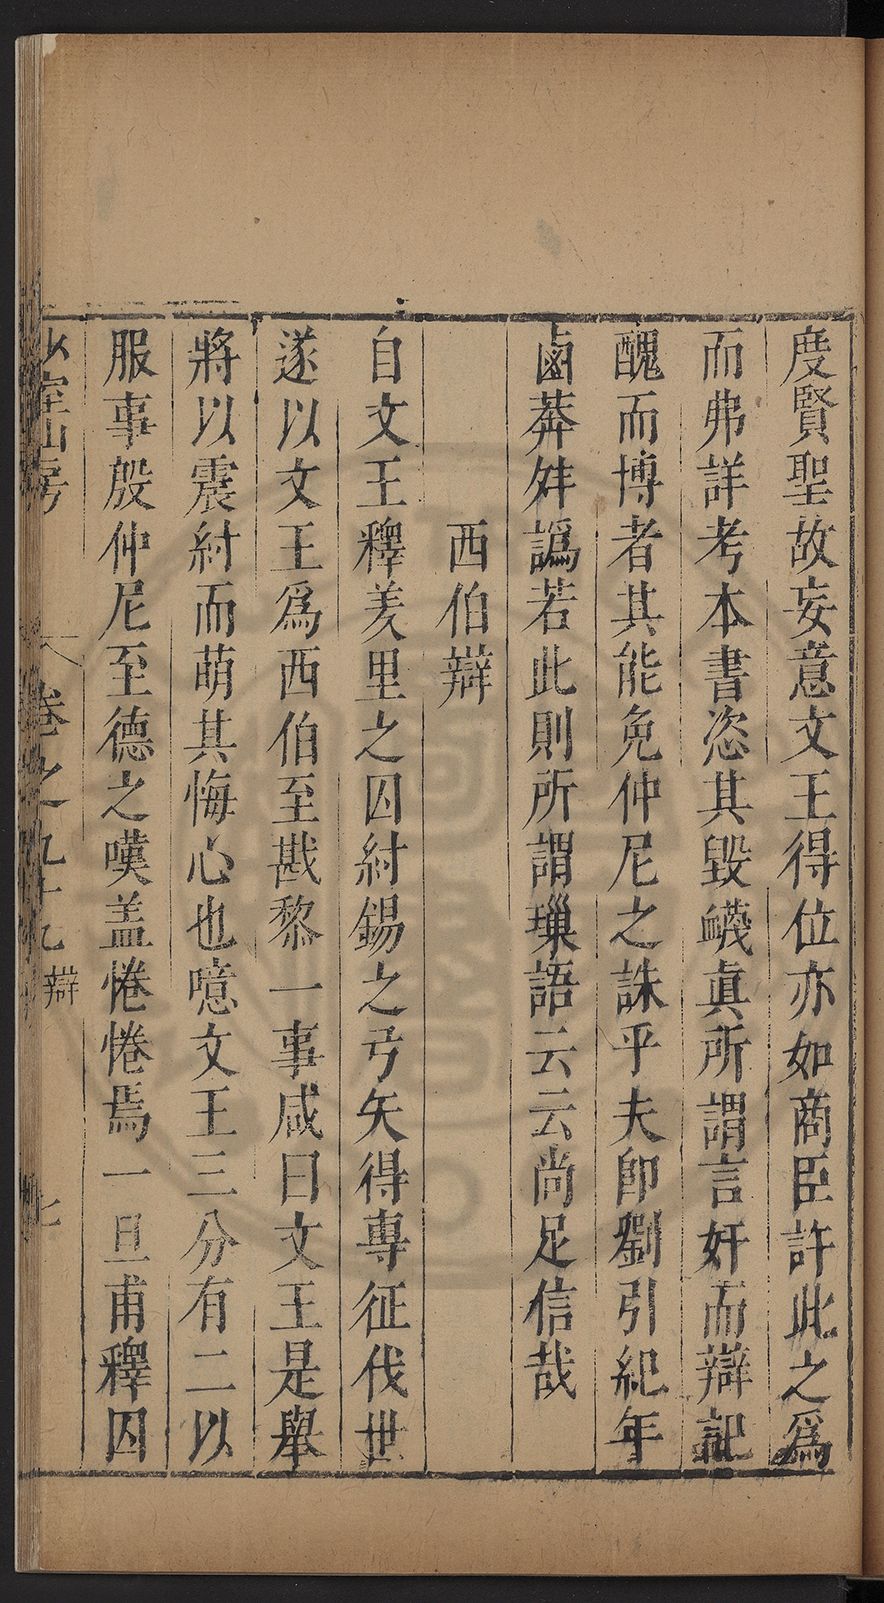 度賢聖故妄意文王得位亦如商臣許此之爲
而弗詳考本書恣其毀衊眞所謂言奸而辯記
醜而博者其能免仲尼之誅乎夫卽劉引紀年
鹵莽舛譌若此則所謂璅語云云尚足信哉
西伯辯
自文王釋羑里之囚紂錫之弓矢得專征伐世
遂以文王爲西伯至戡黎一事咸曰文王是舉
將以震紂而萌其悔心也噫文王三分有二以
服事殷仲尼至德之嘆盖惓惓焉一旦甫釋囚
少室山房 卷之九十九 辯 七